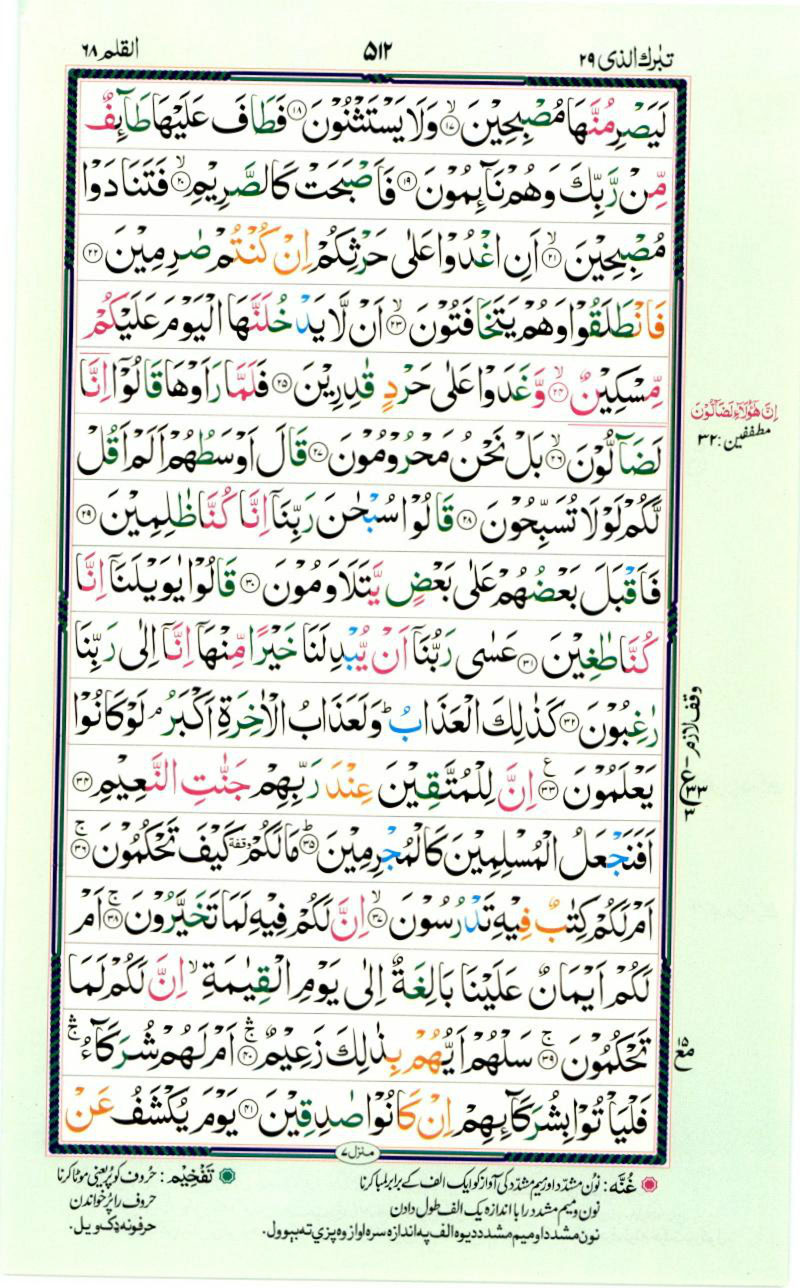 تبٰرك الذی ۲۹
۵۱۲
القلم ۶۸
لَيَصْرِمُنَّهَا مُصْبِحِيْنَ ۙ‏﴿۱۷﴾ وَلَا يَسْتَثْنُوْنَ ﴿۱۸﴾ فَطَافَ عَلَيْهَا طَآئِفٌ
مِّنْ رَّبِّكَ وَهُمْ نَآئِمُوْنَ ﴿۱۹﴾ فَاَصْبَحَتْ كَالصَّرِيْمِ ۙ‏﴿۲۰﴾ فَتَنَادَوْا
مُصْبِحِيْنَ ۙ‏﴿۲۱﴾ اَنِ اغْدُوْا عَلٰى حَرْثِكُمْ اِنْ كُنْتُمْ صٰرِمِيْنَ ﴿۲۲﴾
فَانْطَلَقُوْا وَهُمْ يَتَخَافَتُوْنَ ۙ‏﴿۲۳﴾ اَنْ لَّا يَدْخُلَنَّهَا الْيَوْمَ عَلَيْكُمْ
مِّسْكِيْنٌ ۙ‏﴿۲۴﴾ وَّغَدَوْا عَلٰى حَرْدٍ قٰدِرِيْنَ ﴿۲۵﴾ فَلَمَّا رَاَوْهَا قَالُوْۤا اِنَّا
لَضَآلُّوْنَ ۙ‏﴿۲۶﴾ بَلْ نَحْنُ مَحْرُوْمُوْنَ ﴿۲۷﴾ قَالَ اَوْسَطُهُمْ اَلَمْ اَقُلْ
لَّكُمْ لَوْلَا تُسَبِّحُوْنَ ﴿۲۸﴾ قَالُوْا سُبْحٰنَ رَبِّنَاۤ اِنَّا كُنَّا ظٰلِمِيْنَ ﴿۲۹﴾
فَاَقْبَلَ بَعْضُهُمْ عَلٰى بَعْضٍ يَّتَلَاوَمُوْنَ ﴿۳۰﴾ قَالُوْا يٰوَيْلَنَاۤ اِنَّا
كُنَّا طٰغِيْنَ ﴿۳۱﴾ عَسٰى رَبُّنَاۤ اَنْ يُّبْدِلَنَا خَيْرًا مِّنْهَاۤ اِنَّاۤ اِلٰى رَبِّنَا
رٰغِبُوْنَ ﴿۳۲﴾ كَذٰلِكَ الْعَذَابُ ؕ وَلَعَذَابُ الْاٰخِرَةِ اَكْبَرُ ۘ لَوْ كَانُوْا
يَعْلَمُوْنَ ﴿۳۳﴾ ع اِنَّ لِلْمُتَّقِيْنَ عِنْدَ رَبِّهِمْ جَنّٰتِ النَّعِيْمِ ﴿۳۴﴾
اَفَنَجْعَلُ الْمُسْلِمِيْنَ كَالْمُجْرِمِيْنَ ؕ‏﴿۳۵﴾ مَا لَكُمْ وقفة كَيْفَ تَحْكُمُوْنَ ۚ‏﴿۳۶﴾
اَمْ لَكُمْ كِتٰبٌ فِيْهِ تَدْرُسُوْنَ ۙ‏﴿۳۷﴾ اِنَّ لَكُمْ فِيْهِ لَمَا تَخَيَّرُوْنَ ۚ‏﴿۳۸﴾ اَمْ
لَكُمْ اَيْمَانٌ عَلَيْنَا بَالِغَةٌ اِلٰى يَوْمِ الْقِيٰمَةِ ۙ اِنَّ لَكُمْ لَمَا
تَحْكُمُوْنَ ۚ‏﴿۳۹﴾ سَلْهُمْ اَيُّهُمْ بِذٰلِكَ زَعِيْمٌ ۛۚ‏﴿۴۰﴾ اَمْ لَهُمْ شُرَكَآءُ ۛۚ
فَلْيَاْتُوْا بِشُرَكَآئِهِمْ اِنْ كَانُوْا صٰدِقِيْنَ ﴿۴۱﴾ يَوْمَ يُكْشَفُ عَنْ
اِنَّ هٰٓؤُلَآءِ لَضَآلُّوْنَ
مطففين : ۳۲
وقف لازم
ع
۳۳
مع ۱۵
منزل ۷
غُنَّه: نون مشدد اور میم مشدد کی آواز کو ایک الف کے برابر لمبا کرنا
نون و میم مشدد را با اندازه یک الف طول دادن
نون مشدد او میم مشدد د یوه الف په اندازه سره اواز وه پزې ته بېوول.
تَفْخِيْم: حروف کو پُر یعنی موٹا کرنا
حروف را پُر خواندن
حرفونه ډک ویل.